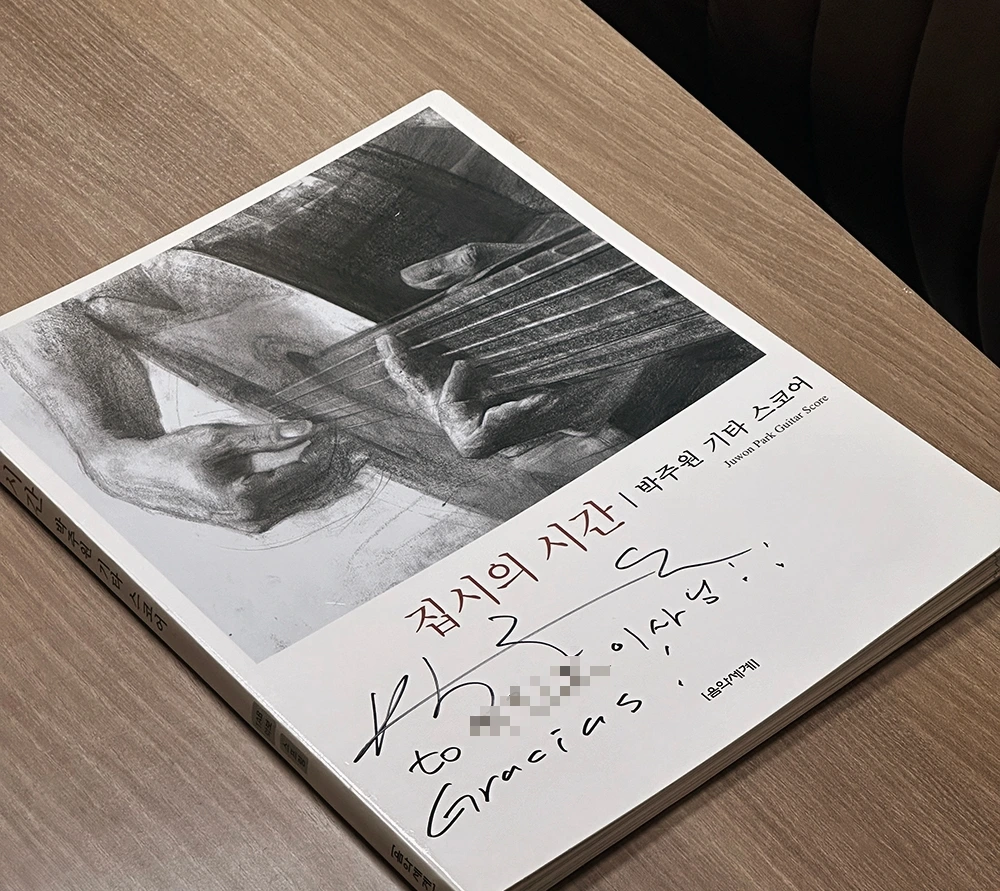 집시의 시간 | 박주원 기타 스코어
Juwon Park Guitar Score
to 이사님
Gracias.
[음악세계]
시간 박주원 기타 스코어
[음악세계]